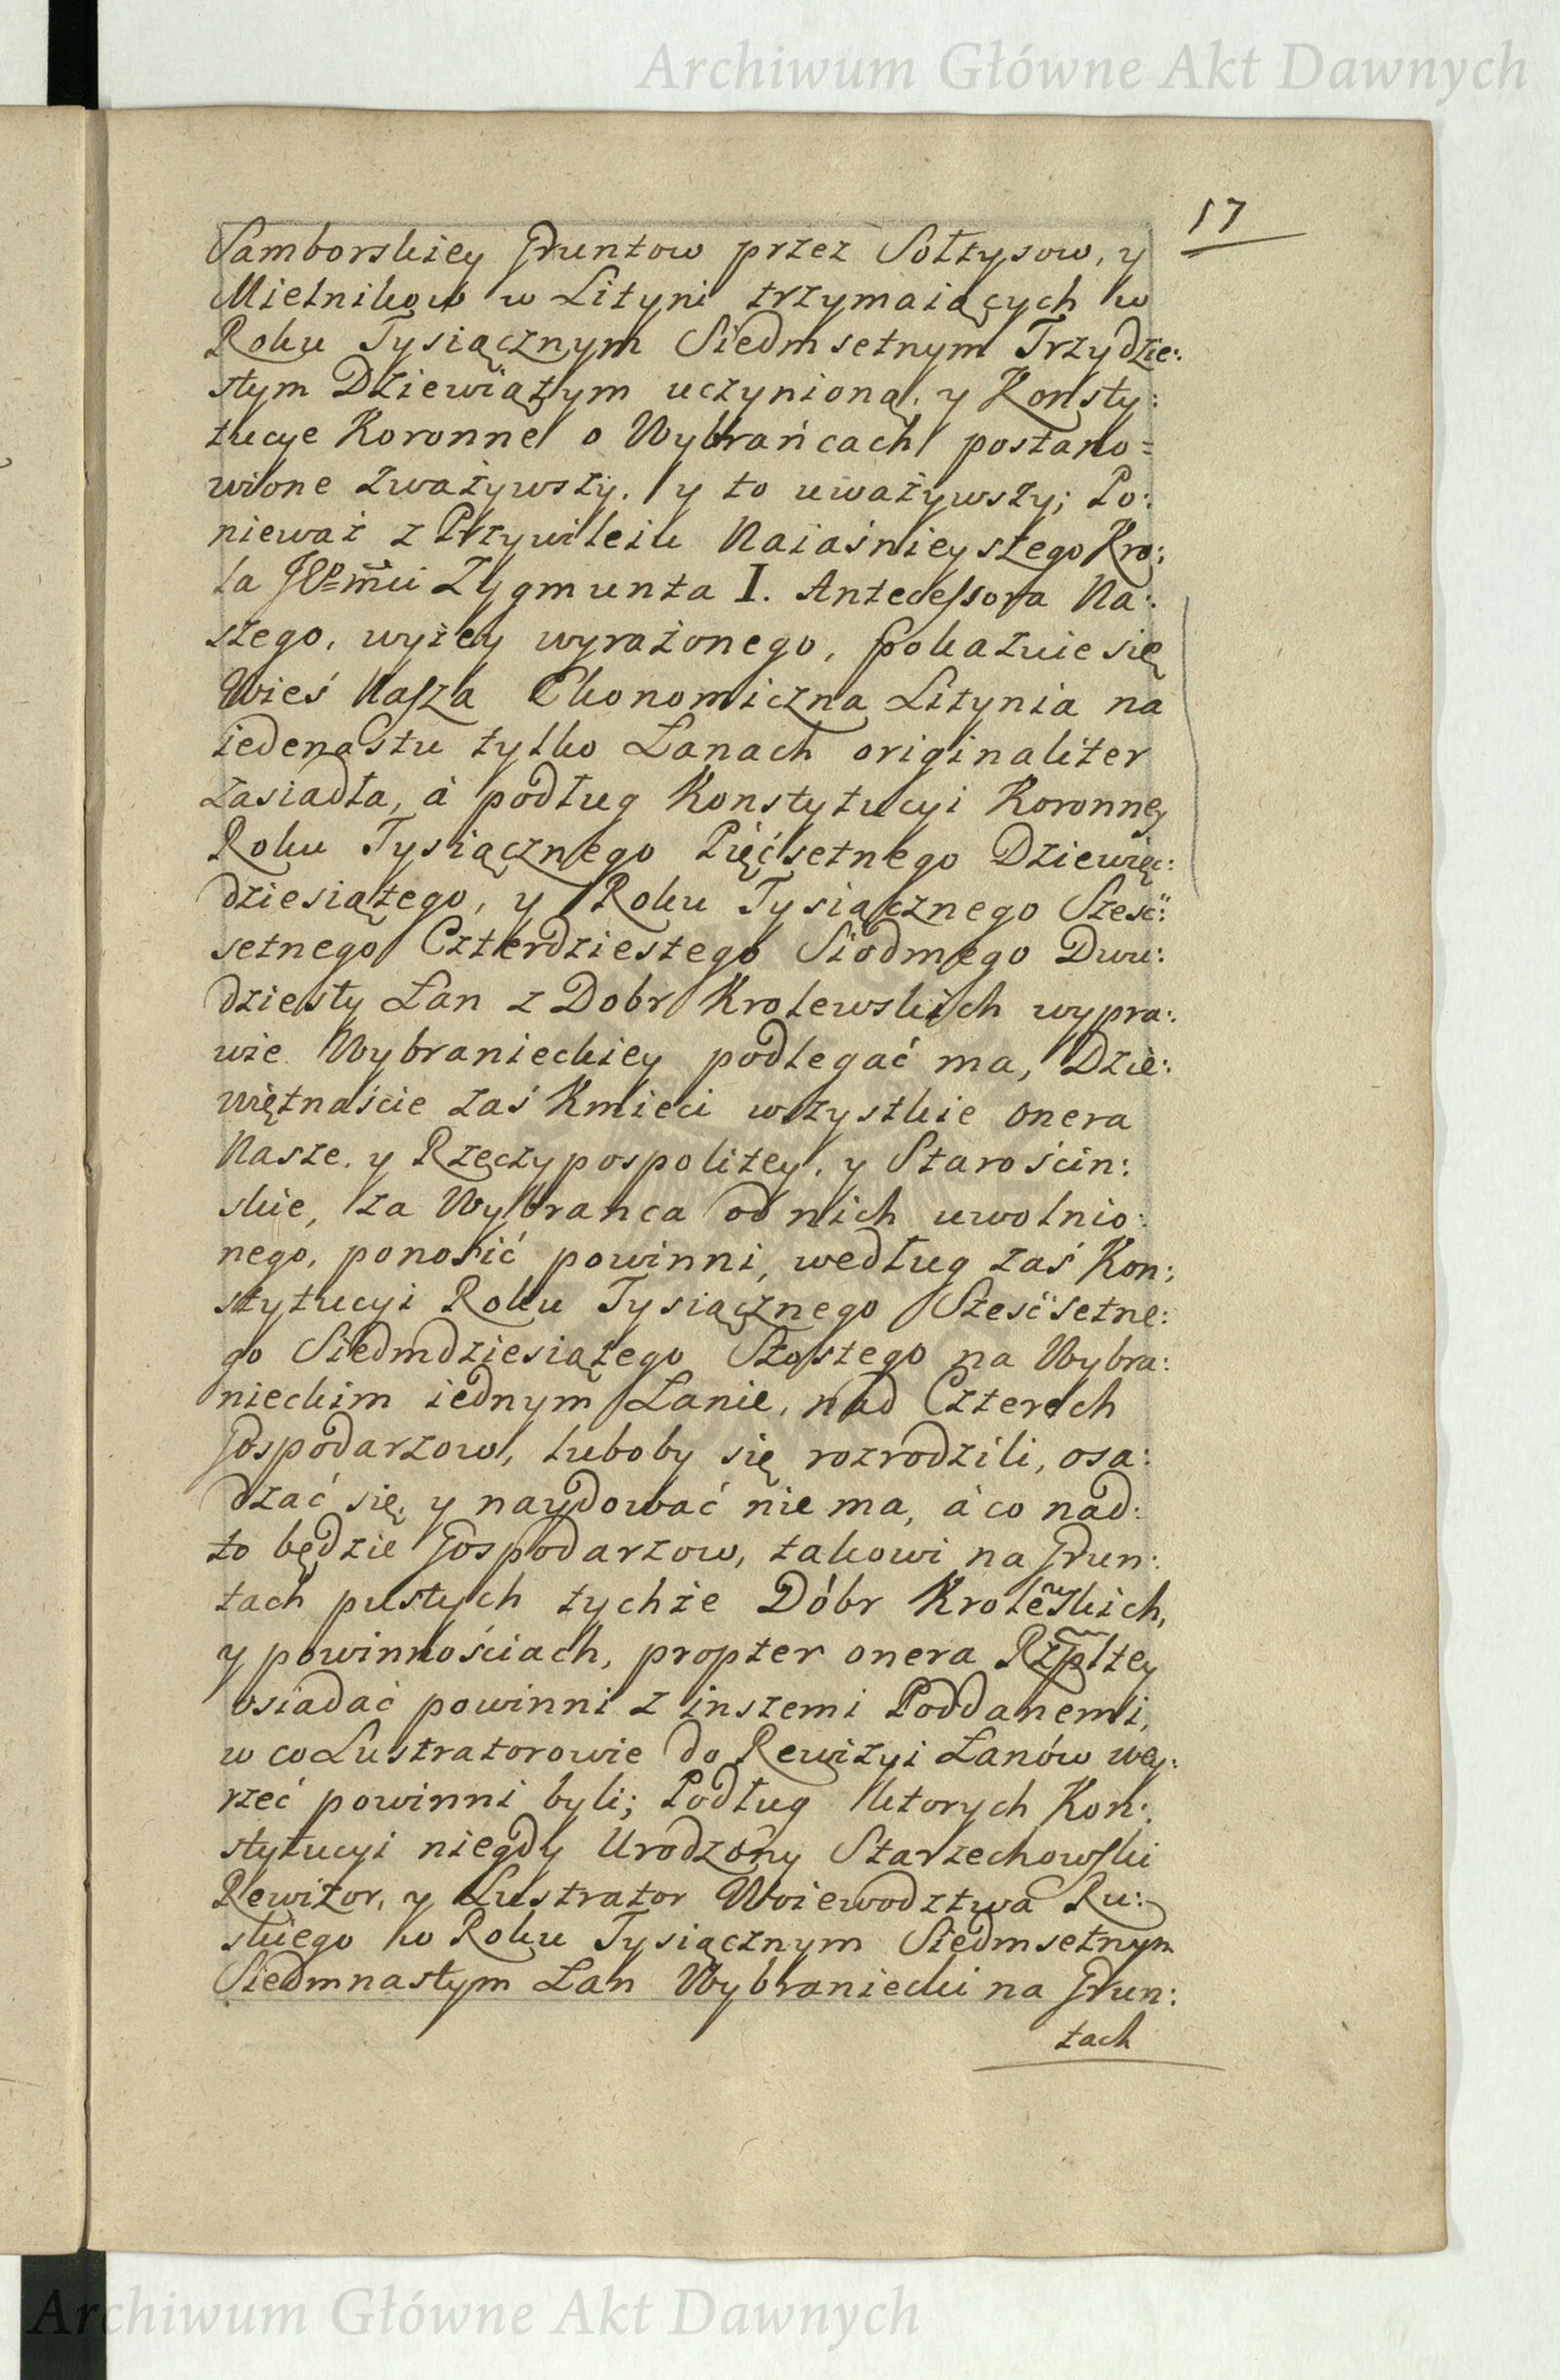 Archiwum Główne Akt Dawnych
17
Samborskiey Gruntow przez Sołtysow, y
Mielnikow w Lityni trzymaiących w
Roku Tysiącznym Siedmsetnym Trzydzie:
stym Dziewiątym uczynioną, y Konsty:
tucye Koronne o Wybrańcach postano=
wione zważywszy, y to uważywszy; Po:
nieważ z Przywileiu Naiaśnieyszego Kro:
la Zygmunta I. Antecessora Na:
szego, wyżey wyrażonego, pokazuie się
Wieś Nasza Ekonomiczna Litynia na
iedenastu tylko Łanach originaliter
zasiadła, à podług Konstytucyi Koronney
Roku Tysiącznego Pięćsetnego Dziewięc:
dziesiątego, y Roku Tysiącznego Sześć:
setnego Czterdziestego Siodmego Dwu:
dziesty Łan z Dobr Krolewskich wypra:
wie Wybranieckiey podlegać ma, Dzie:
więtnaście zaś Kmieci wszystkie onera
Nasze, y Rzeczypospolitey, y Starościn:
skie, za Wybranca od nich uwolnio:
nego, ponosić powinni, według zaś Kon:
stytucyi Roku Tysiącznego Sześćsetne:
go Siedmdziesiątego Szostego na Wybra:
nieckim iednym Łanie, nad Czterech
Gospodarzow, luboby się rozrodzili, osa:
dzać się, y naydować nie ma, à co nad:
to będzie Gospodarzow, takowi na Grun:
tach pustych tychże Dóbr Krolewskich,
y powinnościach, propter onera Rzpltey
osiadać powinni z inszemi Poddanemi,
w co Lustratorowie do Rewizyi Łanów wey:
rzeć powinni byli; Podług ktorych Kon:
stytucyi niegdy Urodzony Starzechowski
Rewizor, y Lustrator Woiewodztwa Ru:
skiego w Roku Tysiącznym Siedmsetnym
Siedmnastym Łan Wybraniecki na Grun:
tach
Archiwum Główne Akt Dawnych